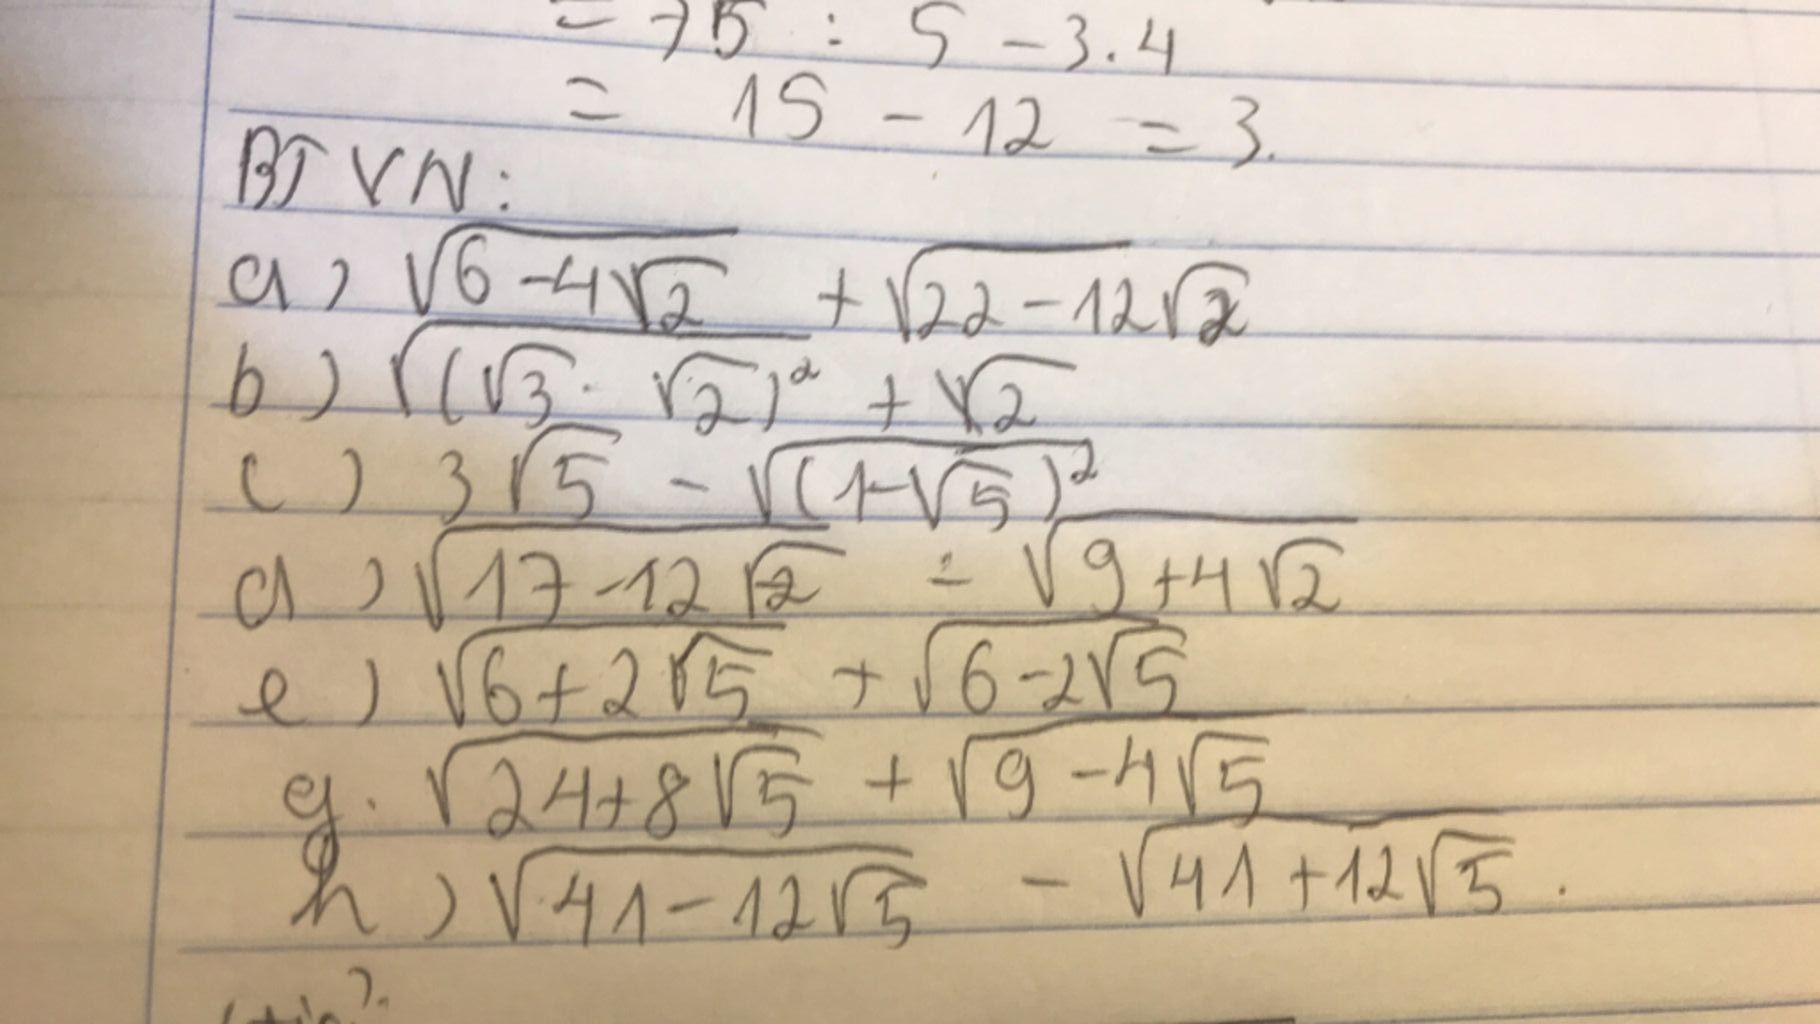 = 75 : 5 - 3.4
= 15 - 12 = 3.
BTVN:
a) √(6-4√2) + √(22-12√2)
b) √((√3 - √2)²) + √2
c) 3√5 - √((1-√5)²)
d) √(17-12√2) - √(9+4√2)
e) √(6+2√5) + √(6-2√5)
g. √(24+8√5) + √(9-4√5)
h) √(41-12√5) - √(41+12√5).